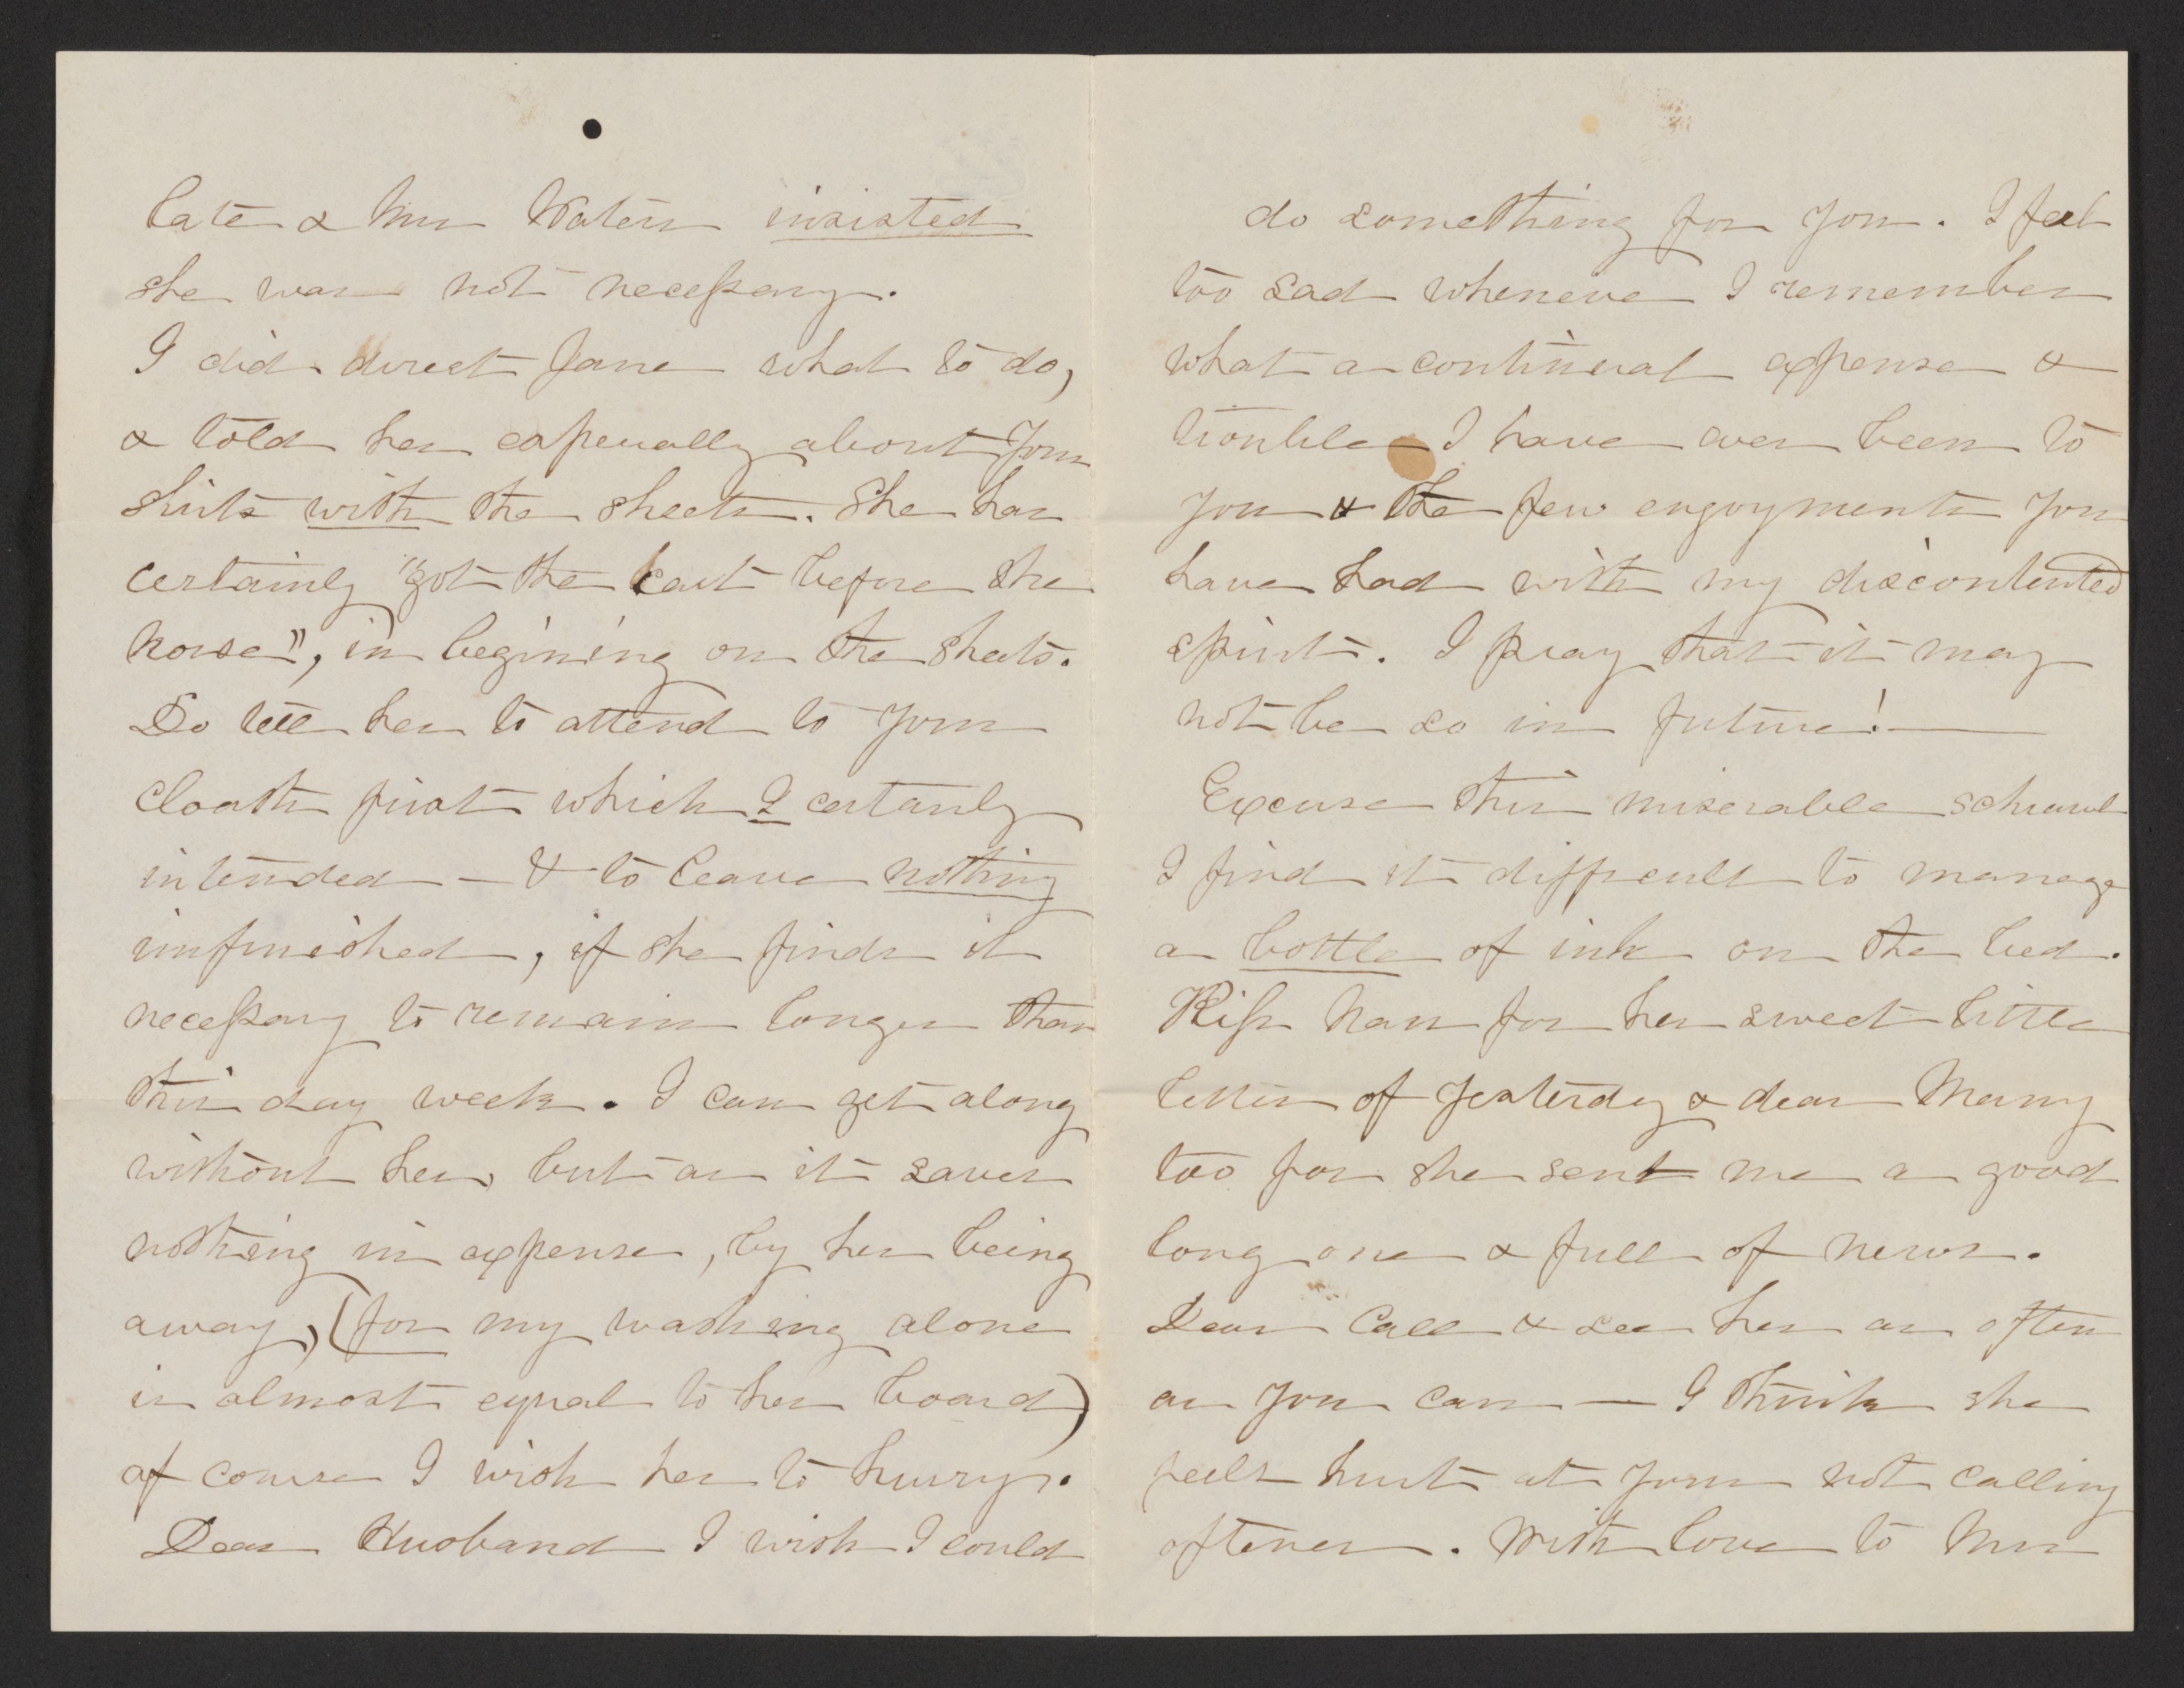 late & Mrs Waters insisted
she was not necessary.
I did direct Jane what to do,
& told her especially about your
shirts with the sheets. She has
certainly "got the cart before the
horse", in begining on the sheets.
Do tell her to attend to your
cloaths first which I certanly
intended — & to leave nothing
unfinished, if she finds it
necessary to remain longer than
this day week. I can get along
without her, but as it saves
nothing in expense, by her being
away, (for my washing alone
is almost equal to her board)
of course I wish her to hurry.
Dear Husband I wish I could
do something for you. I feel
too sad whenever I remember
what a continual expense &
trouble I have ever been to
you & the few enjoyments you
have had with my discontented
spirit. I pray that it may
not be so in future! —
Excuse this miserable schrawl
I find it difficult to manage
a bottle of ink on the bed.
Kiss Nan for her sweet little
letter of yesterday & dear Mamy
too for she sent me a good
long one & full of news.
Dear Call & see her as often
as you can — I think she
feels hurt at your not calling
oftener. With love to Mrs